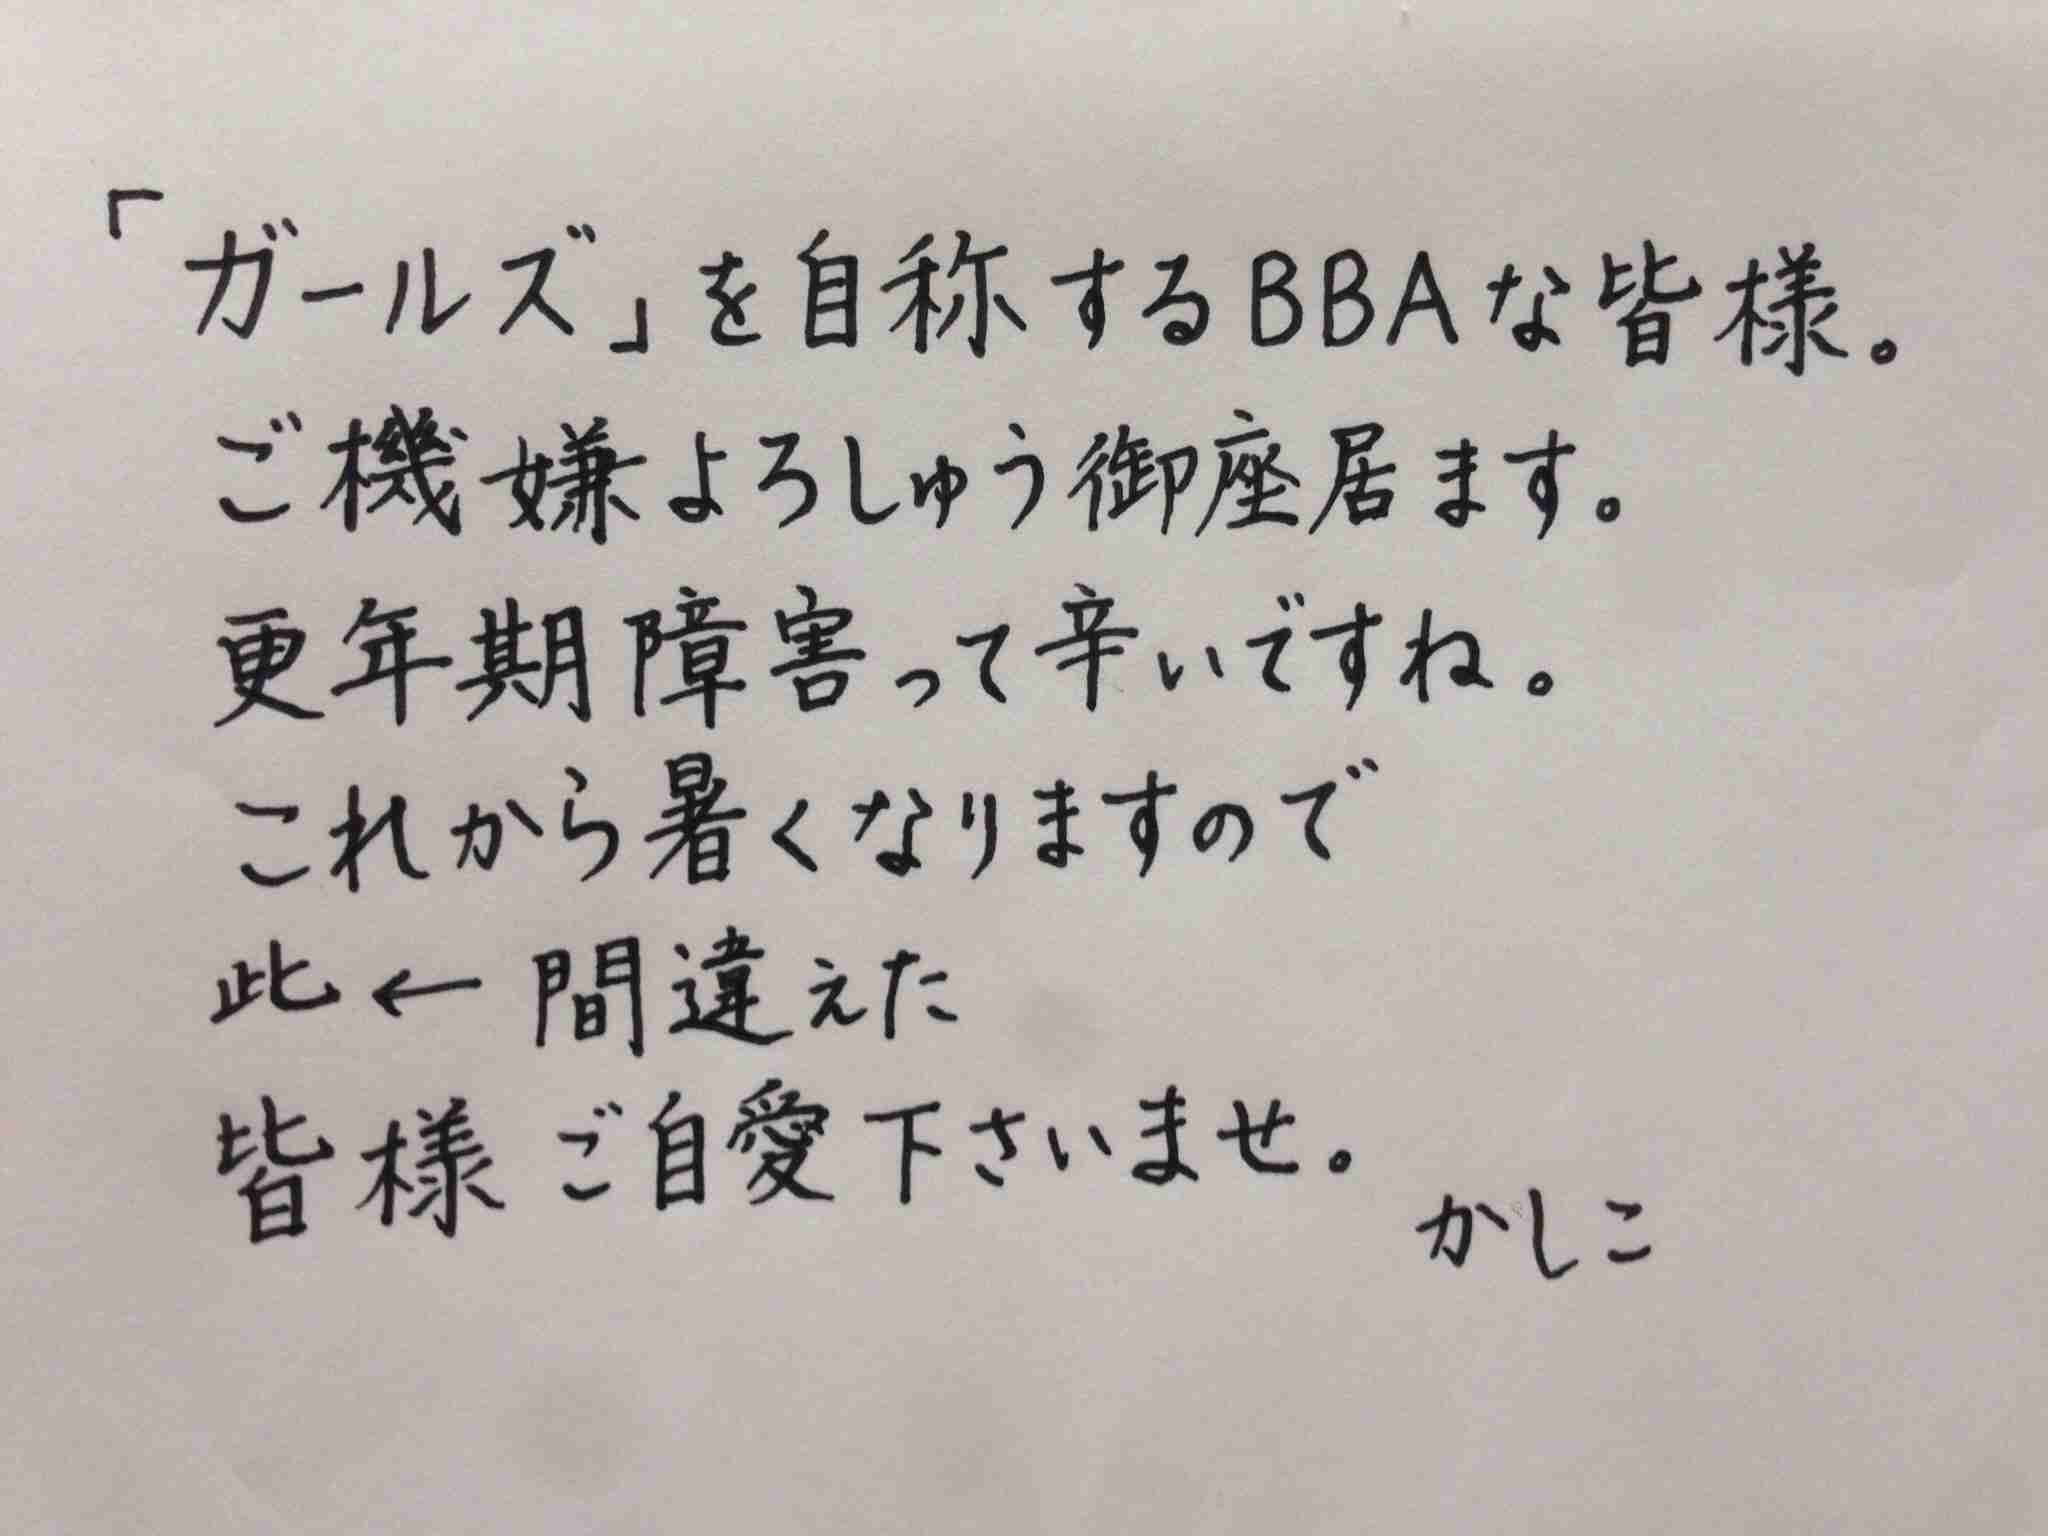 「ガールズ」を自称するBBAな皆様。
ご機嫌よろしゅう御座居ます。
更年期障害って辛いですね。
これから暑くなりますので
此←間違えた
皆様ご自愛下さいませ。
かしこ